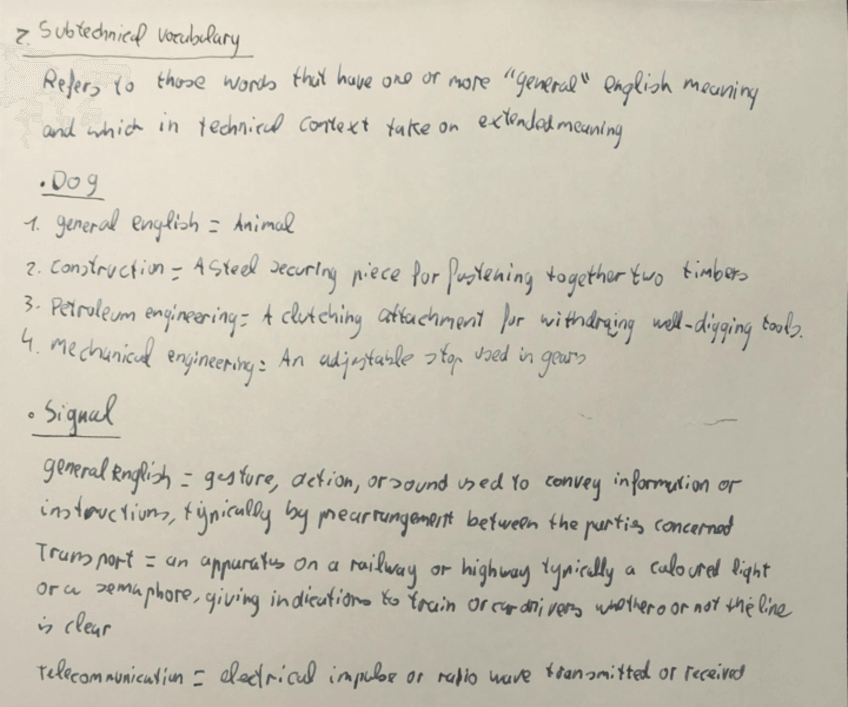 2. Subtechnical vocabulary
Refers to those words that have one or more "general" english meaning
and which in technical context take on extended meaning
• Dog
1. general english = Animal
2. Construction = A steel securing piece for fastening together two timbers
3. Petroleum engineering = A clutching attachment for withdraging well-digging tools.
4. Mechanical engineering = An adjustable stop used in gears
• Signal
general English = gesture, action, or sound used to convey information or
instructions, typically by prearrangement between the parties concerned
Transport = an apparatus on a railway or highway typically a coloured light
or a semaphore, giving indications to train or car drivers whethero or not the line
is clear
Telecommunication = electrical impulse or radio wave transmitted or received